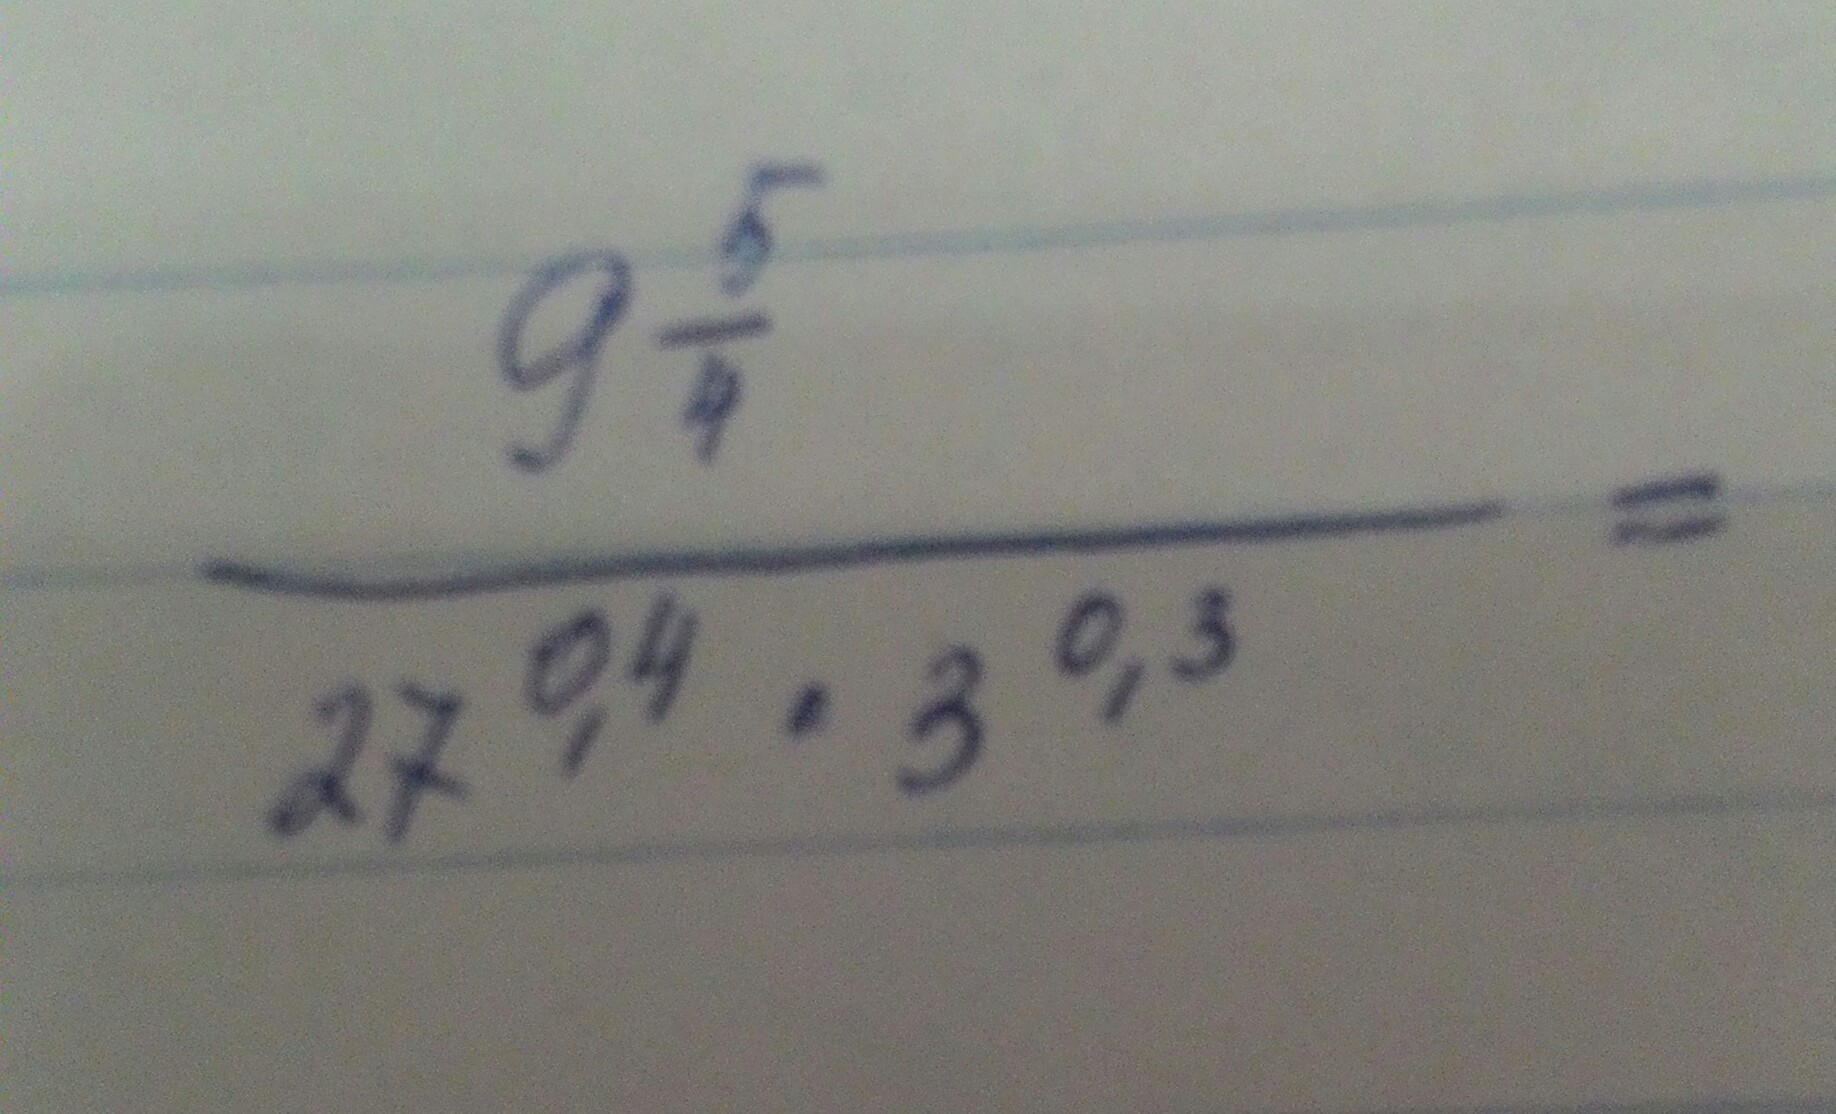 9^{\frac{5}{4}}
――― =
27^{0,4} · 3^{0,3}